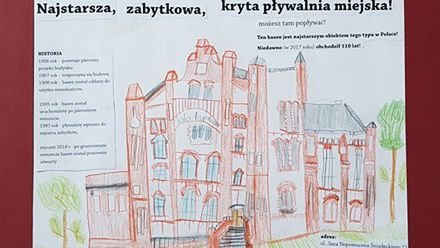 Najstarsza, zabytkowa, kryta pływalnia miejska!
możesz tam popływać!
Ten basen jest najstarszym obiektem tego typu w Polsce!
Niedawno (w 2017 roku) obchodził 110 lat!
HISTORIA
1906 rok - powstaje pierwszy
projekt budynku
1907 rok - rozpoczyna się budowa
1908 rok - basen został oddany do
użytku mieszkańców,
1995 rok basen został
uruchomiony po pierwszym
remoncie,
1997 rok- pływalnię wpisano do
rejestru zabytków,
styczeń 2018 r - po gruntownym
remoncie basen został ponownie
otwarty
adres:
ul. Jana Nepomucena Śniadeckiego